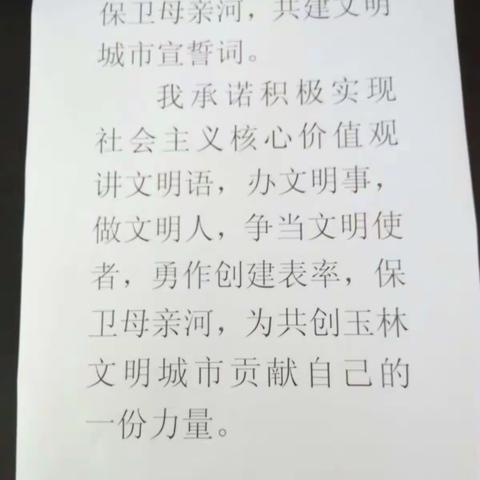 保卫母亲河，共建文明
城市宣誓词。
我承诺积极实现
社会主义核心价值观
讲文明语，办文明事，
做文明人，争当文明使
者，勇作创建表率，保
卫母亲河，为共创玉林
文明城市贡献自己的
一份力量。